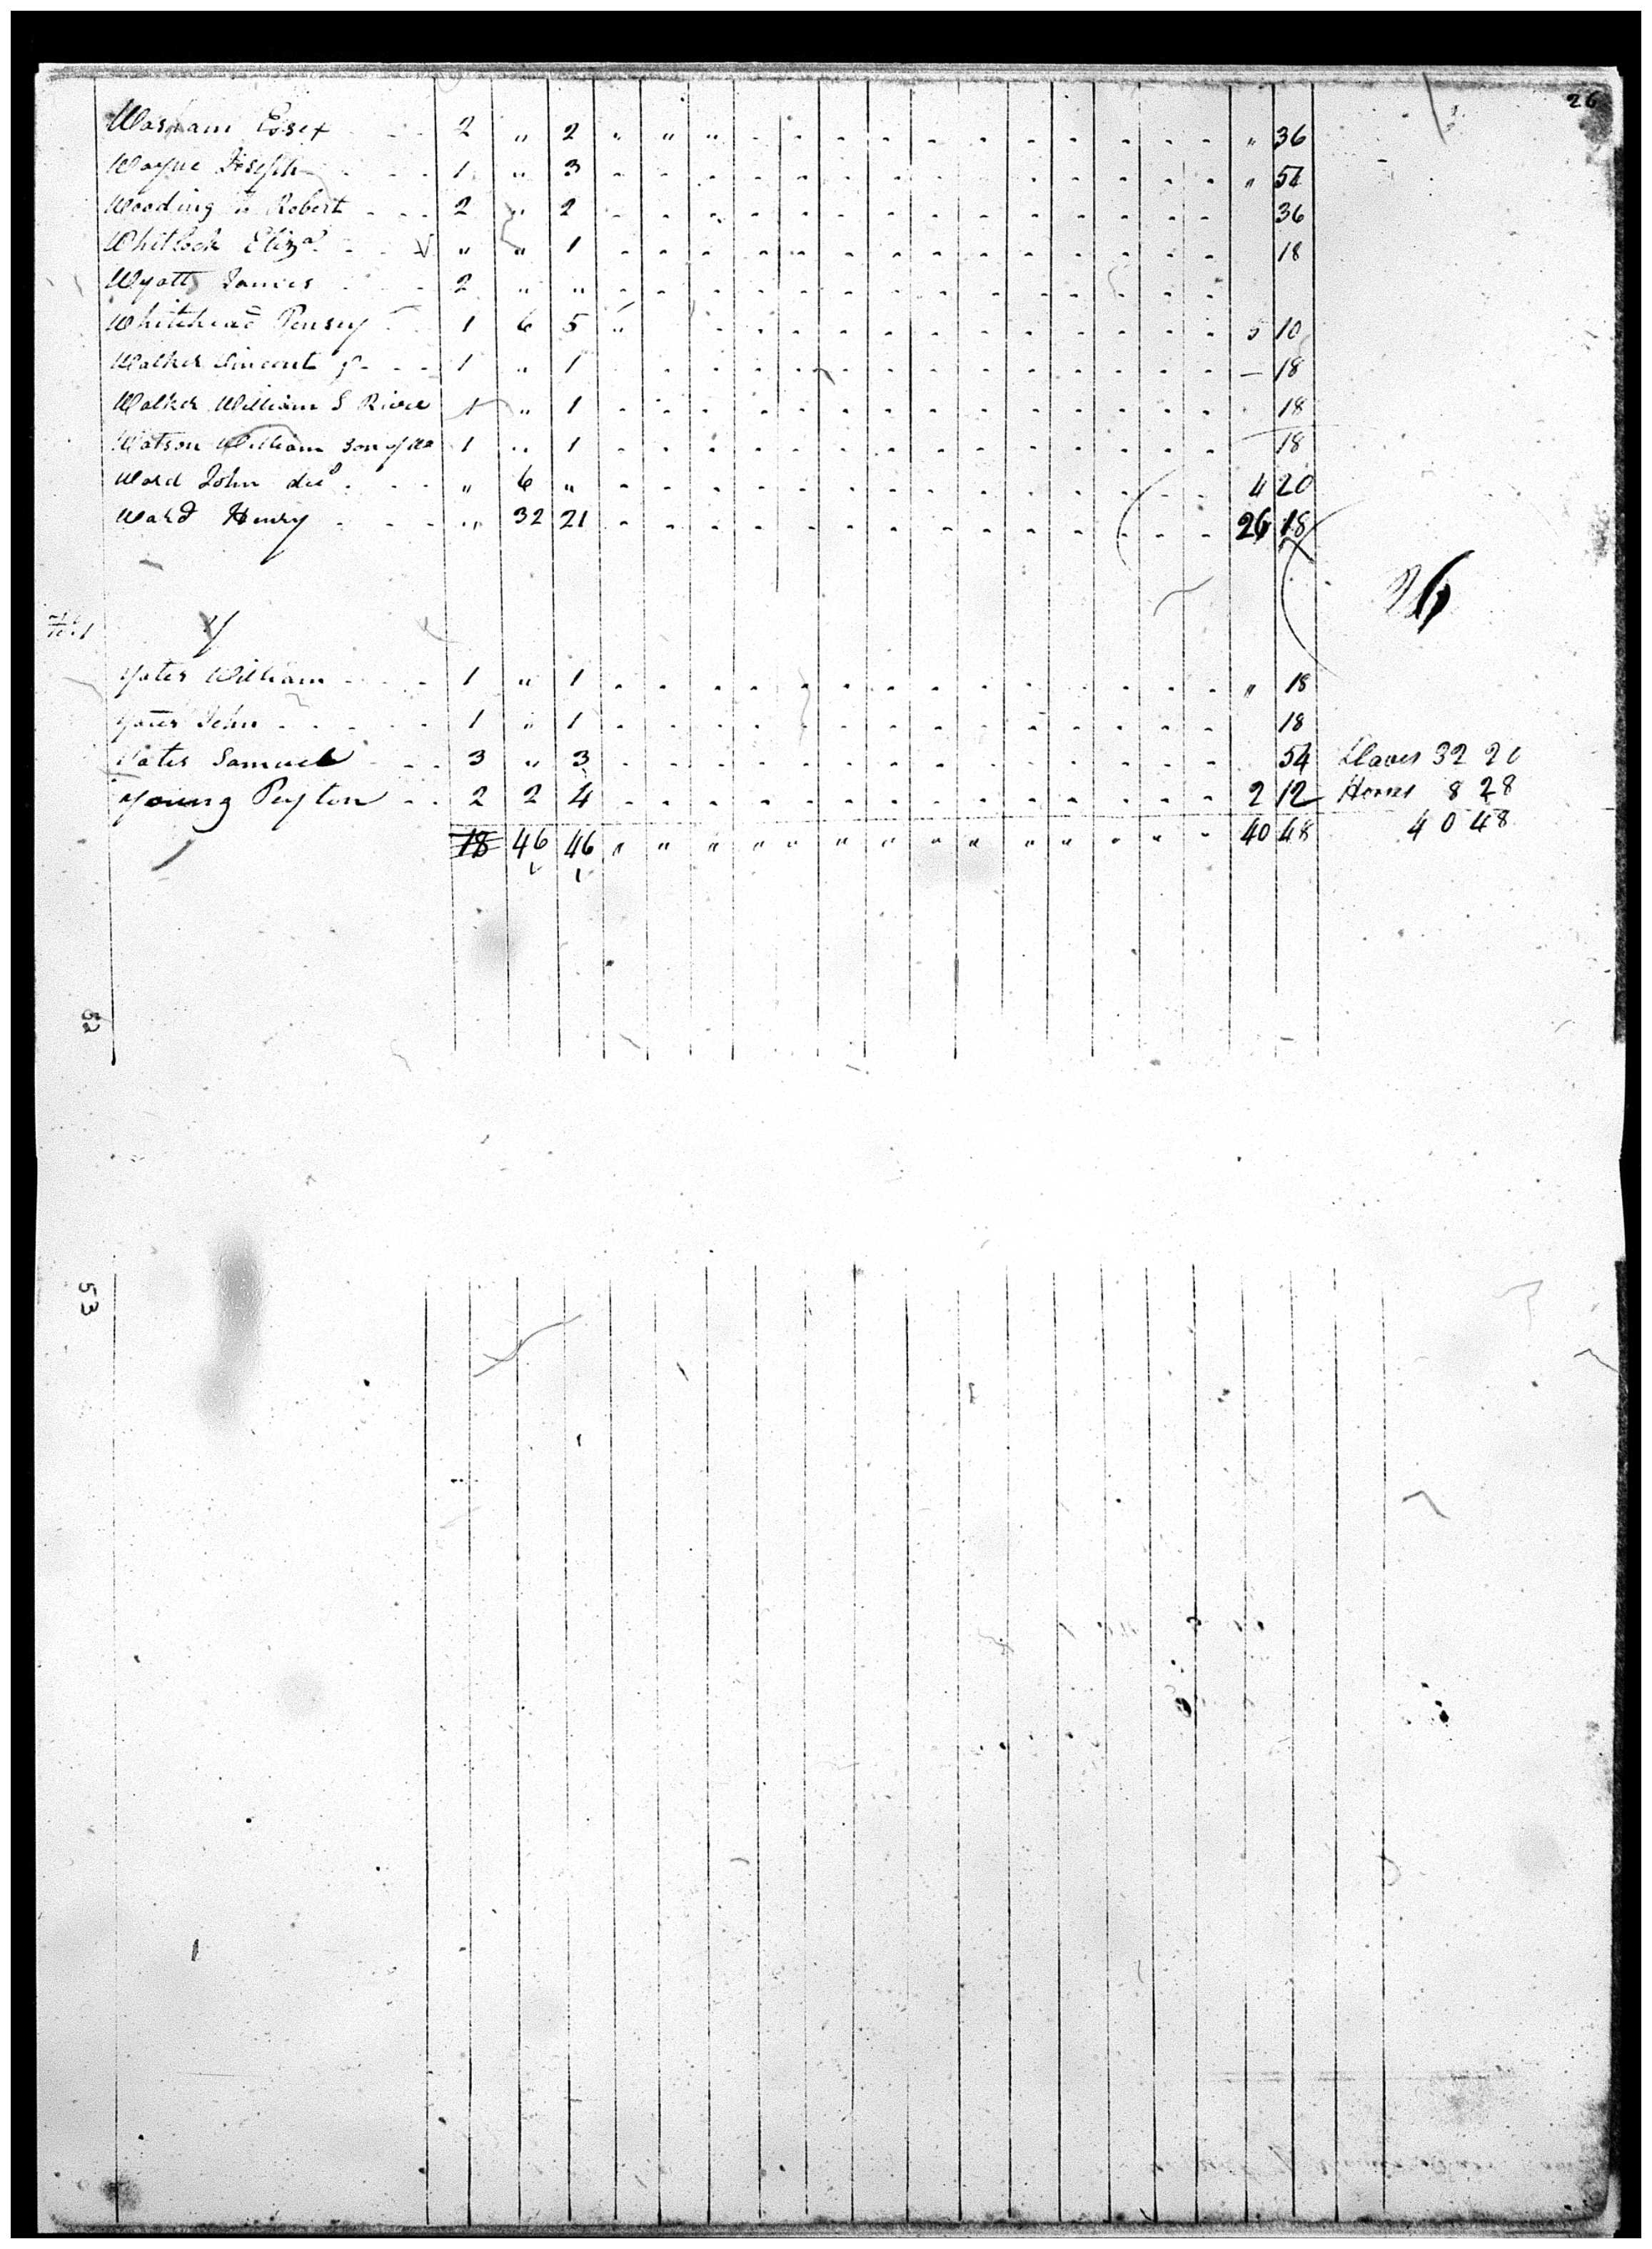 26
Washam Essex - - 2 " 2 " " " - - - - - - - - - - - " 36
Wayne Joseph - - - 1 " 3 - - - - - - - - - - - - - - " 54
Wooding Robert - - - 2 " 2 - - - - - - - - - - - - - - 36
Whitlock Eliza - - " " 1 - - - - - - - - - - - - - - 18
Wyatt James - - - 2 " " - - - - - - - - - - - - - -
Whitehead Pensey - 1 6 5 " - - - - - - - - - - - - - 5 10
Walker Vincent - - - 1 " 1 - - - - - - - - - - - - - - — 18
Walker William S River 1 " 1 - - - - - - - - - - - - - - 18
Watson William son of 1 " 1 - - - - - - - - - - - - - - 18
Ward John decd - - - " 6 " - - - - - - - - - - - - - - 4 20
Ward Henry - - - " 32 21 - - - - - - - - - - - - - - 26 18
26
Y
Yates William - - - 1 " 1 - - - - - - - - - - - - - - " 18
Yates John - - - - 1 " 1 - - - - - - - - - - - - - - 18
Yates Samuel - - 3 " 3 - - - - - - - - - - - - - - 54 Slaves 32 20
Young Peyton - - 2 2 4 - - - - - - - - - - - - - - 2 12 Horses 8 28
18 46 46 " " " " " " " " " " " " - - 40 48 40 48
52
53